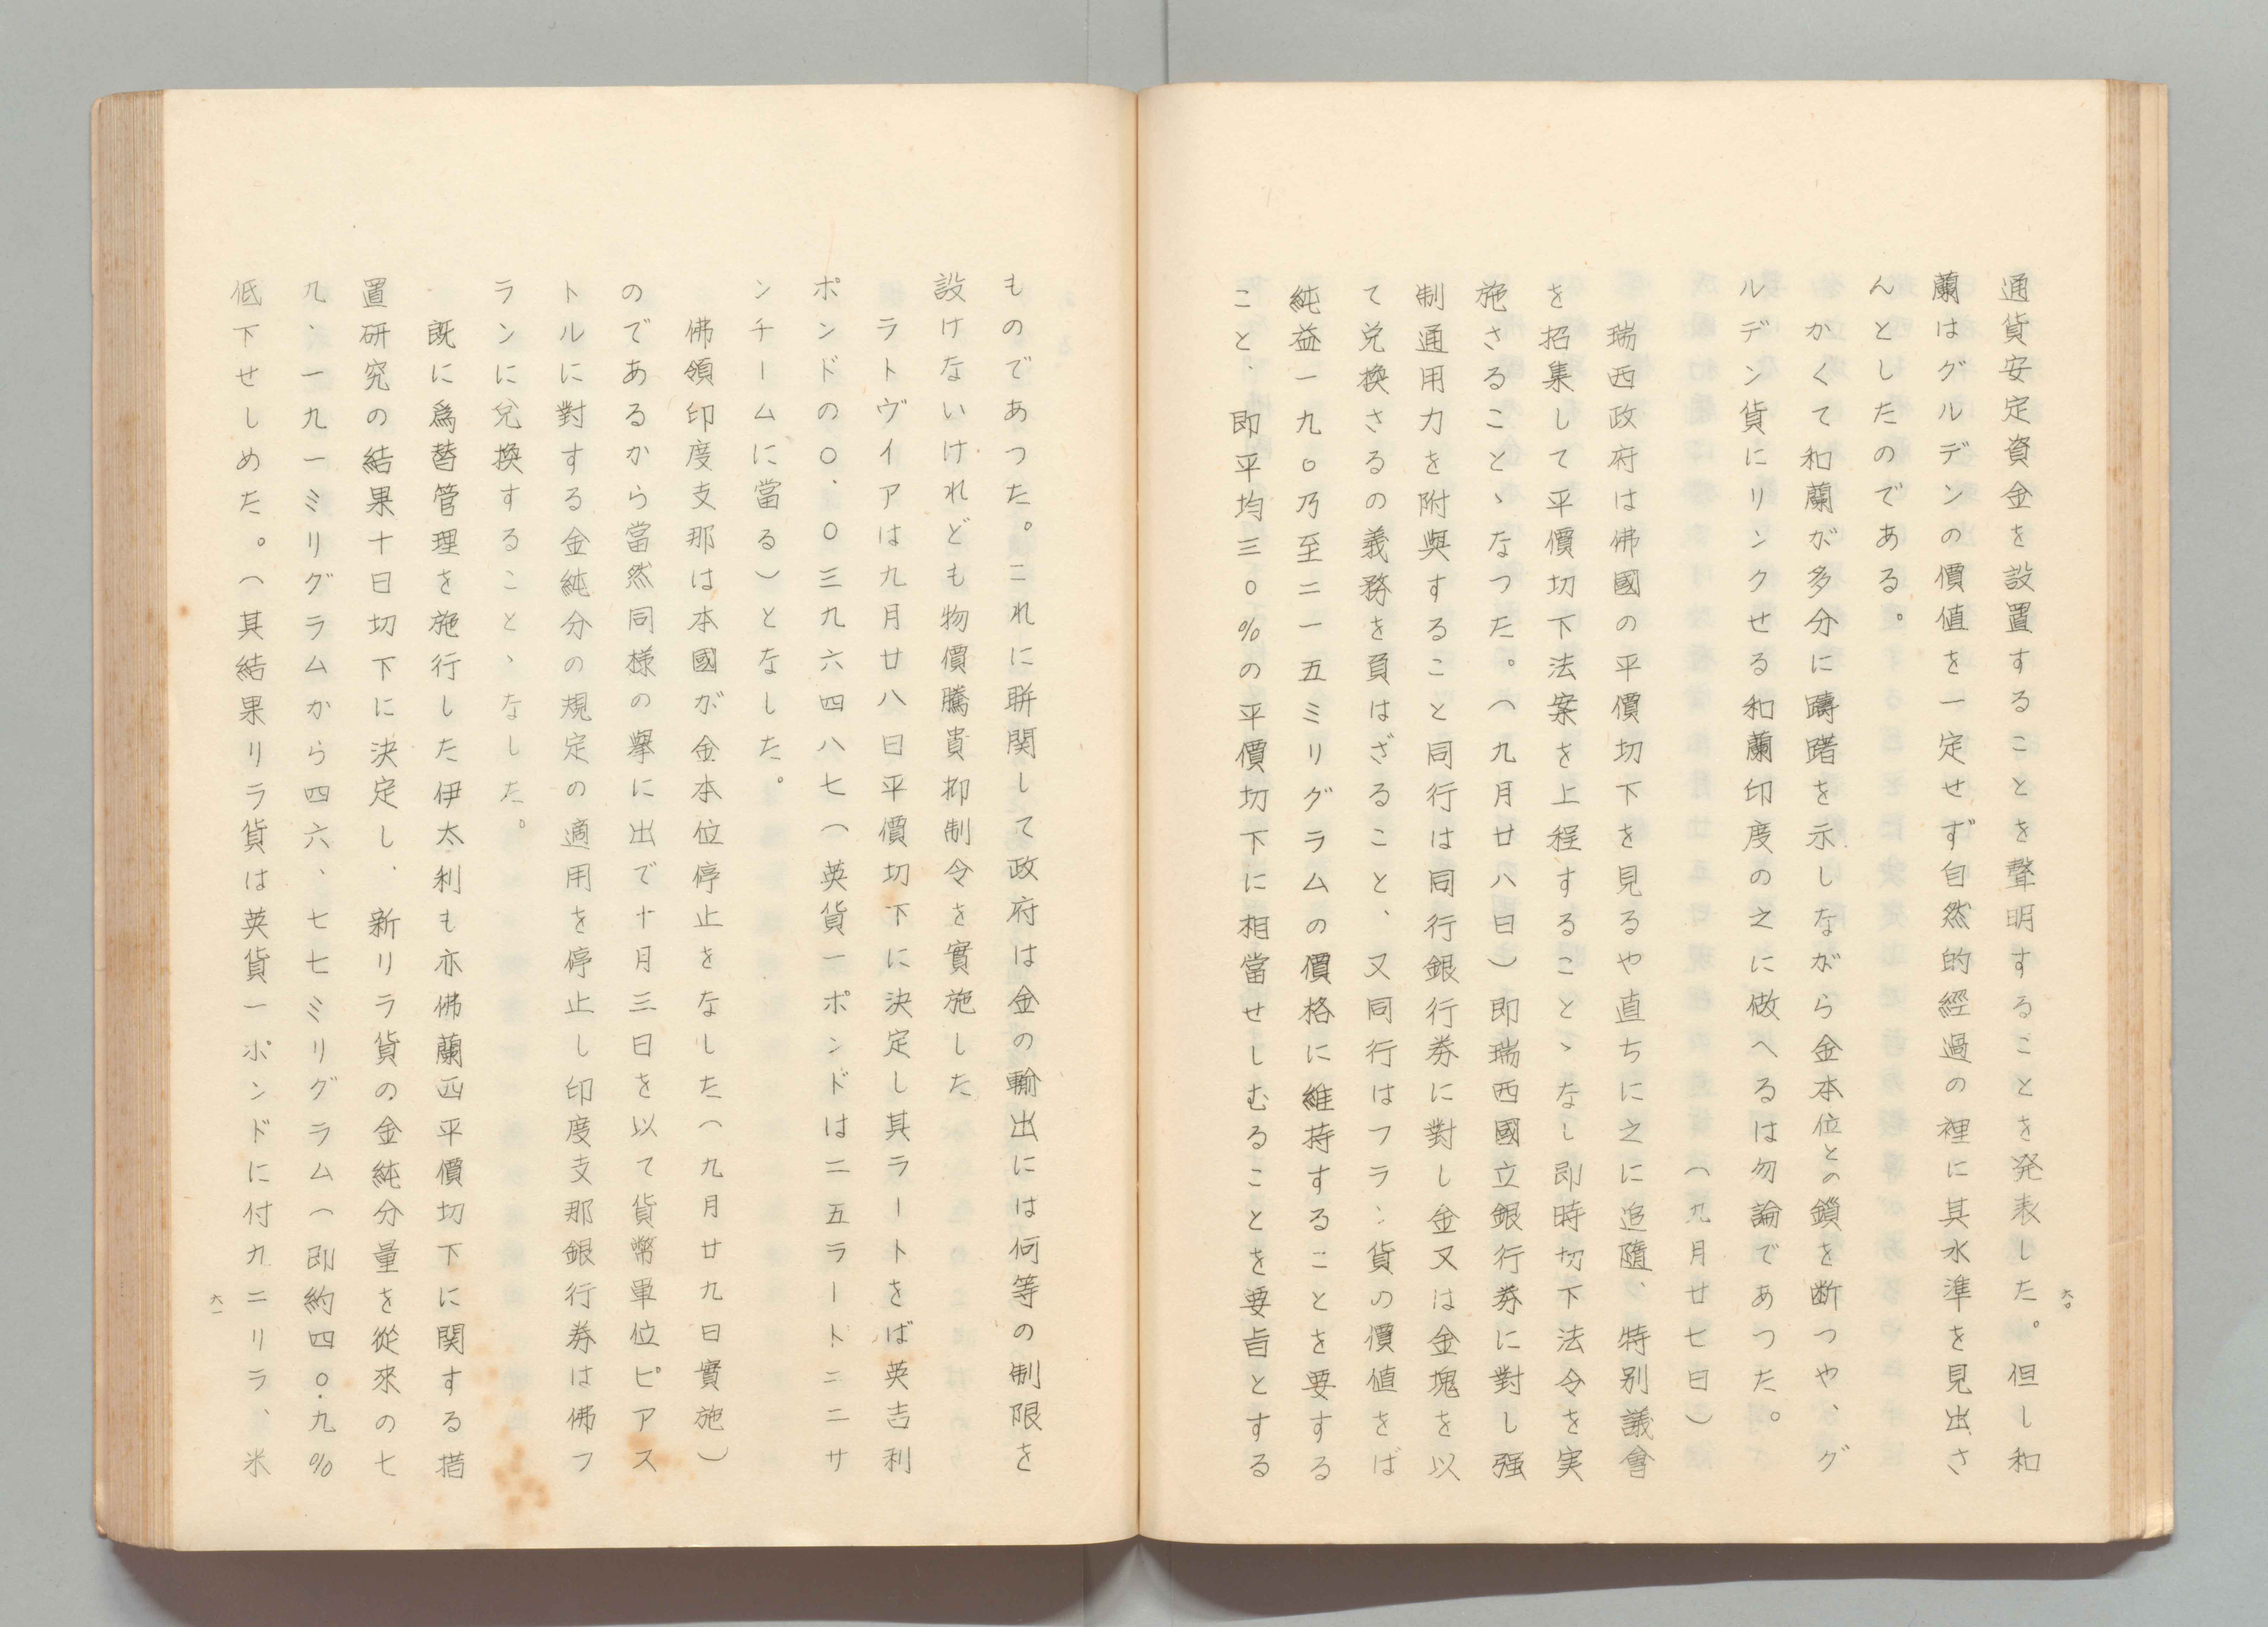 六〇
通貨安定資金を設置することを聲明することを発表した。但し和
蘭はグルデンの價値を一定せず自然的經過の裡に其水準を見出さ
んとしたのである。
かくて和蘭が多分に躊躇を示しながら金本位との鎖を断つや、グ
ルデン貨にリンクせる和蘭印度の之に倣へるは勿論であつた。
（九月廿七日）
瑞西政府は佛國の平價切下を見るや直ちに之に追隨、特别議會
を招集して平價切下法案を上程することゝなし即時切下法令を実
施さることゝなつた。（九月廿八日）即瑞西國立銀行劵に對し强
制通用力を附與すること同行は同行銀行劵に對し金又は金塊を以
て兌換さるの義務を負はざること、又同行はフラン貨の價値をば
純益一九〇乃至二一五ミリグラムの價格に維持することを要する
こと、即平均三〇％の平價切下に相當せしむることを要旨とする
ものであつた。これに聨関して政府は金の輸出には何等の制限を
設けないけれども物價騰貴抑制令を實施した
ラトヴイアは九月廿八日平價切下に決定し其ラートをば英吉利
ポンドの〇．〇三九六四八七（英貨一ポンドは二五ラート二二サ
ンチームに當る）となした。
佛領印度支那は本國が金本位停止をなした（九月廿九日實施）
のであるから當然同様の擧に出で十月三日を以て貨幣單位ピアス
トルに對する金純分の規定の適用を停止し印度支那銀行劵は佛フ
ランに兌換することゝなした。
既に爲替管理を施行した伊太利も亦佛蘭西平價切下に関する措
置研究の結果十日切下に決定し、新リラ貨の金純分量を從來の七
九、一九一ミリグラムから四六、七七ミリグラム（即約四〇．九％
低下せしめた。（其結果リラ貨は英貨一ポンドに付九二リラ、米
六一